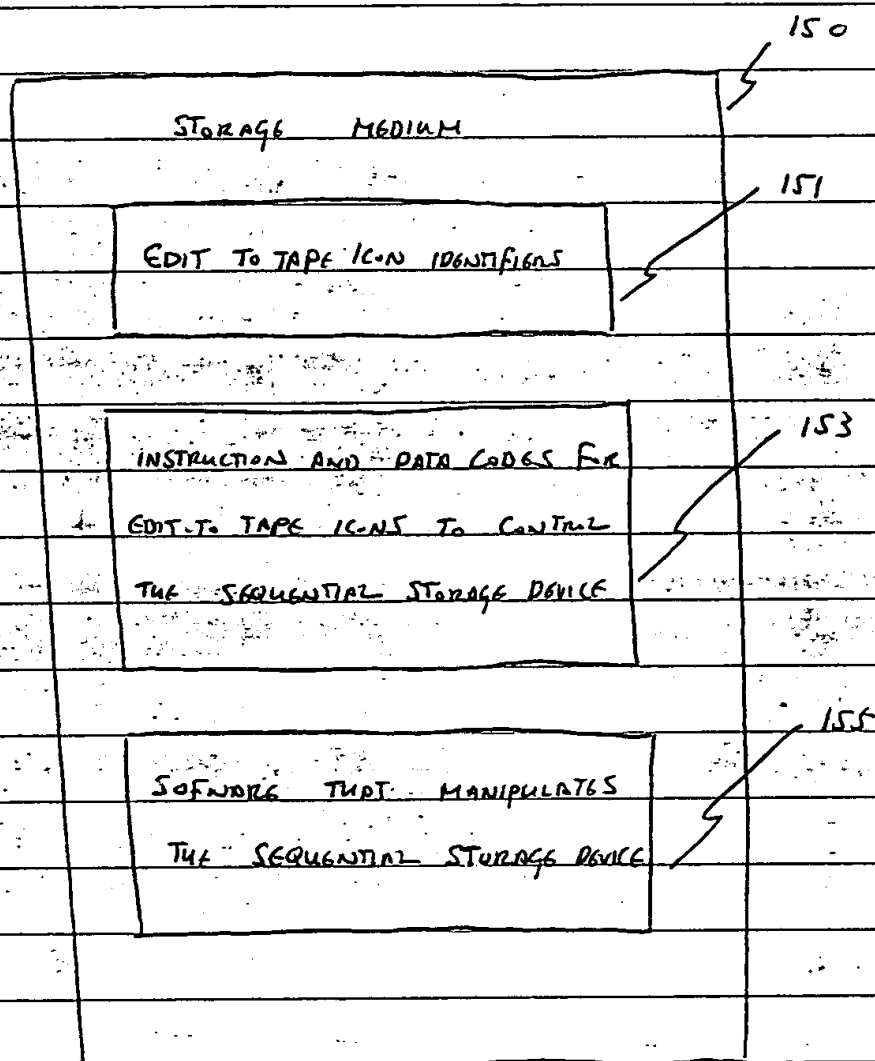 150
STORAGE MEDIUM
151
EDIT TO TAPE ICON IDENTIFIERS
153
INSTRUCTION AND DATA CODES FOR
EDIT TO TAPE ICONS TO CONTROL
THE SEQUENTIAL STORAGE DEVICE
155
SOFTWARE THAT MANIPULATES
THE SEQUENTIAL STORAGE DEVICE